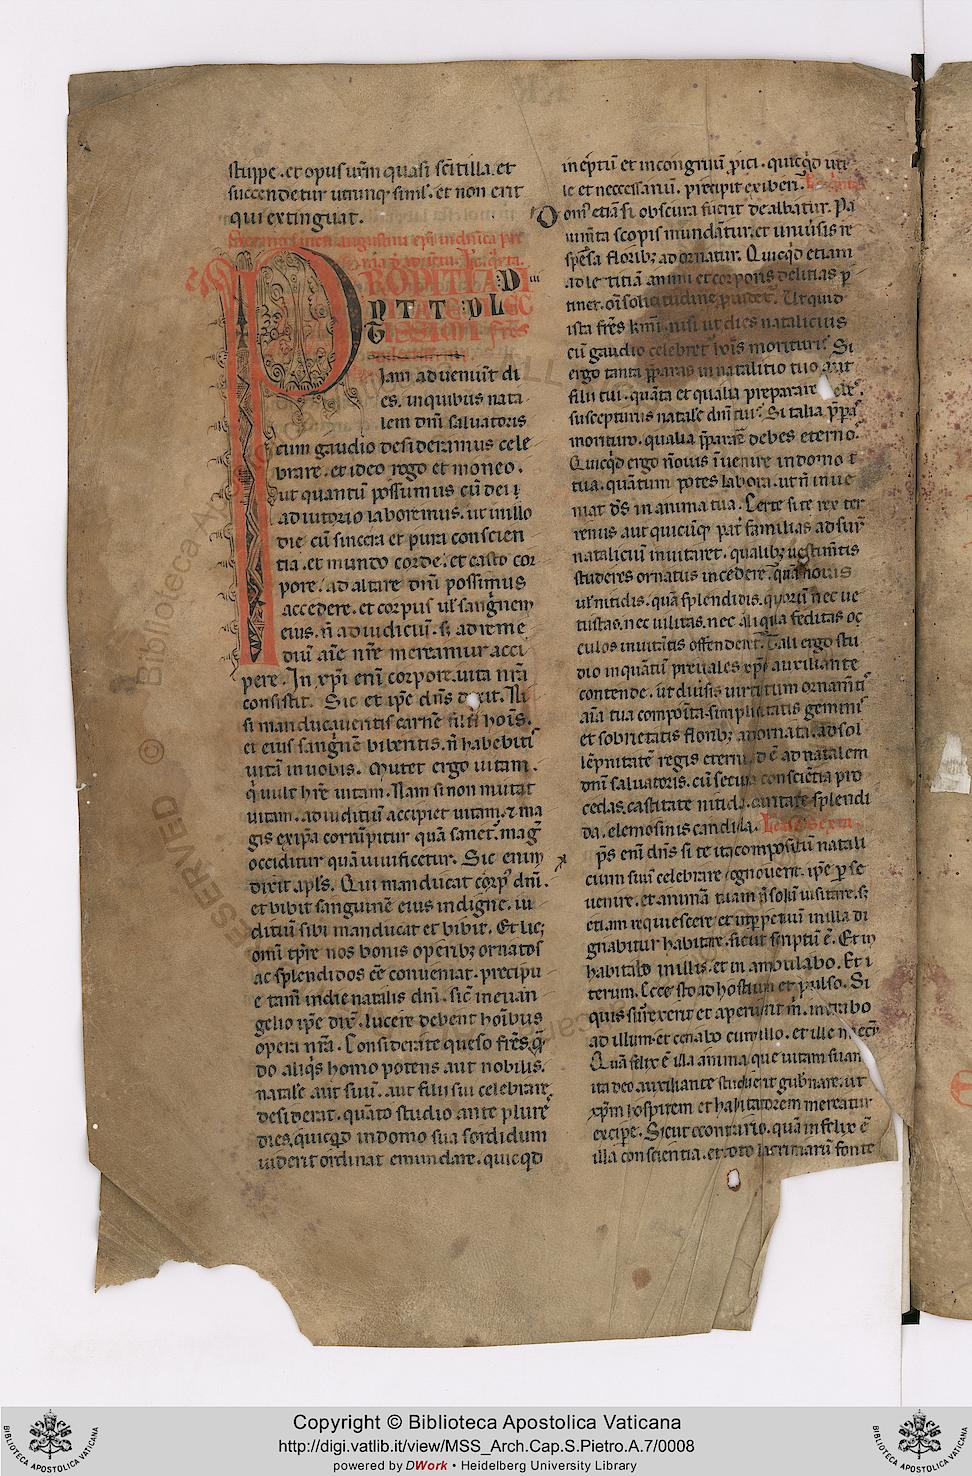 stuppe. et opus ur̄m quasi scītilla. et
succendetur utrūq; simł. et non erit
qui extinguat.
Sermo sancti augustini ep̄i in dn̄ica
PROPITIA D
NTE DL
iam aduenit di
es. in quibus nata
lem dn̄i saluatoris
cum gaudio desideramus cele
brare. et ideo rogo et moneo.
ut quantū possumus cū dei
adiutorio laboremus. ut in illo
die cū sincera et pura conscien
tia. et mundo corde. et casto cor
pore. ad altare dn̄i possimus
accedere. et corpus uł sanḡnem
eius. n̄ ad iudiciū. s; ad reme
diū aīe nr̄e mereamur acci
pere. In xp̄i enī corpore. uita nr̄a
consistit. Sic et ip̄e dn̄s dixit. Ni
si manducaueritis carnē filii hoīs.
et eius sanḡnē biberitis. n̄ habebitis
uitā in uobis. Mutet ergo uitam.
q̄ uult hr̄e uitam. Nam si non mutat
uitam. ad iudiciū accipiet uitam. ⁊ ma
gis ex ip̄a corrūpitur quā sanet. maḡ
occiditur quā uiuificetur. Sic enim
dixit apl̄s. Qui manducat corp̄ dn̄i.
et bibit sanguinē eius indigne. iu
ditiū sibi manducat et bibit. Et lic;
omī tp̄re nos bonis operib; ornatos
ac splendidos ēe conueniat. precipu
e tam̄ in die natalis dn̄i. sic̄ in euan
gelio ip̄e dix̄. lucere debent hoībus
opera nr̄a. Considerate queso fr̄es. q̄
do aliq̄s homo potens aut nobilis.
natałe aut suū. aut filii sui celebrare
desiderat. quāto studio ante plures
dies. quicq̄d in domo sua sordidum
uiderit ordinat emundare. quicq̄d
ineptū et incongruū p̄ici. quicq̄d uti
le et necessariū. precipit exiberi.
Dom' etiā si obscura fuerit dealbatur. Pa
uimēta scopis mundātur. et uniūsis re
spēsa florib; adornatur. Quicq̄d etiam
ad letitiā animi et corporis delitias p̄
tinet. oī sollicitudine puidet. Ut quid
ista fr̄es k̄mi. nisi ut dies natalicius
cū gaudio celebret hoīs morituri. Si
ergo tanta p̄paras in natalitio tuo aut
filii tui. quāta et qualia preparare
suscepturus natałe dn̄i tui. Si talia p̄pas
morituro. qualia p̄parar̄ debes eterno.
Quicq̄d ergo n̄ uis īuenire in domo
tua. quātum potes labora. ut n̄ inue
niat d̄s in anima tua. Certe si te rex ter
renus aut quicūq; pat̄ familias ad suū
nataliciū inuitaret. qualib; uestimētis
studeres ornatus incedere. quā nouis
uł nitidis. quā splendidis. quorū nec ue
tustas. nec uilitas. nec aliqua feditas oc
culos inuitātis offenderet. Tali ergo stu
dio inquātū preuales xp̄o auxiliante
contende. ut diūsis uirtutum ornamētis
aīa tua compoita. simplicitatis gemmis
et sobrietatis florib; adornata. ad sol
lēpnitatē regis eterni. id ē ad natalem
dn̄i saluatoris. cū secura consciētia pro
cedas. castitate nitida. caritate splendi
da. elemosinis candida. Lectio sexta.
xp̄s enī dn̄s si te ita compositū natali
cium suū celebrare cognouerit. ip̄e p̄ se
uenire. et animā tuam n̄ solū uisitare. s;
etiam requiescere et in perpetuū in illa di
gnabitur habitare. sicut scriptū ē. Et in
habitabo in illis. et inambulabo. Et i
terum. Ecce sto ad hostium et pulso. Si
quis surrexerit et aperuerit m̄. intrabo
ad illum. et cenabo cum illo. et ille mecū.
Quā felix ē illa anima que uitam suam
ita deo auxiliante studuerit gub̄nare. ut
xp̄m hospitem et habitatorem mereatur
excipe. Sicut econtrario. quā infelix ē
illa conscientia. et toto lacrimarū fonte
Copyright © Biblioteca Apostolica Vaticana
http://digi.vatlib.it/view/MSS_Arch.Cap.S.Pietro.A.7/0008
powered by DWork • Heidelberg University Library
BIBLIOTECA APOSTOLICA VATICANA
BIBLIOTECA APOSTOLICA VATICANA